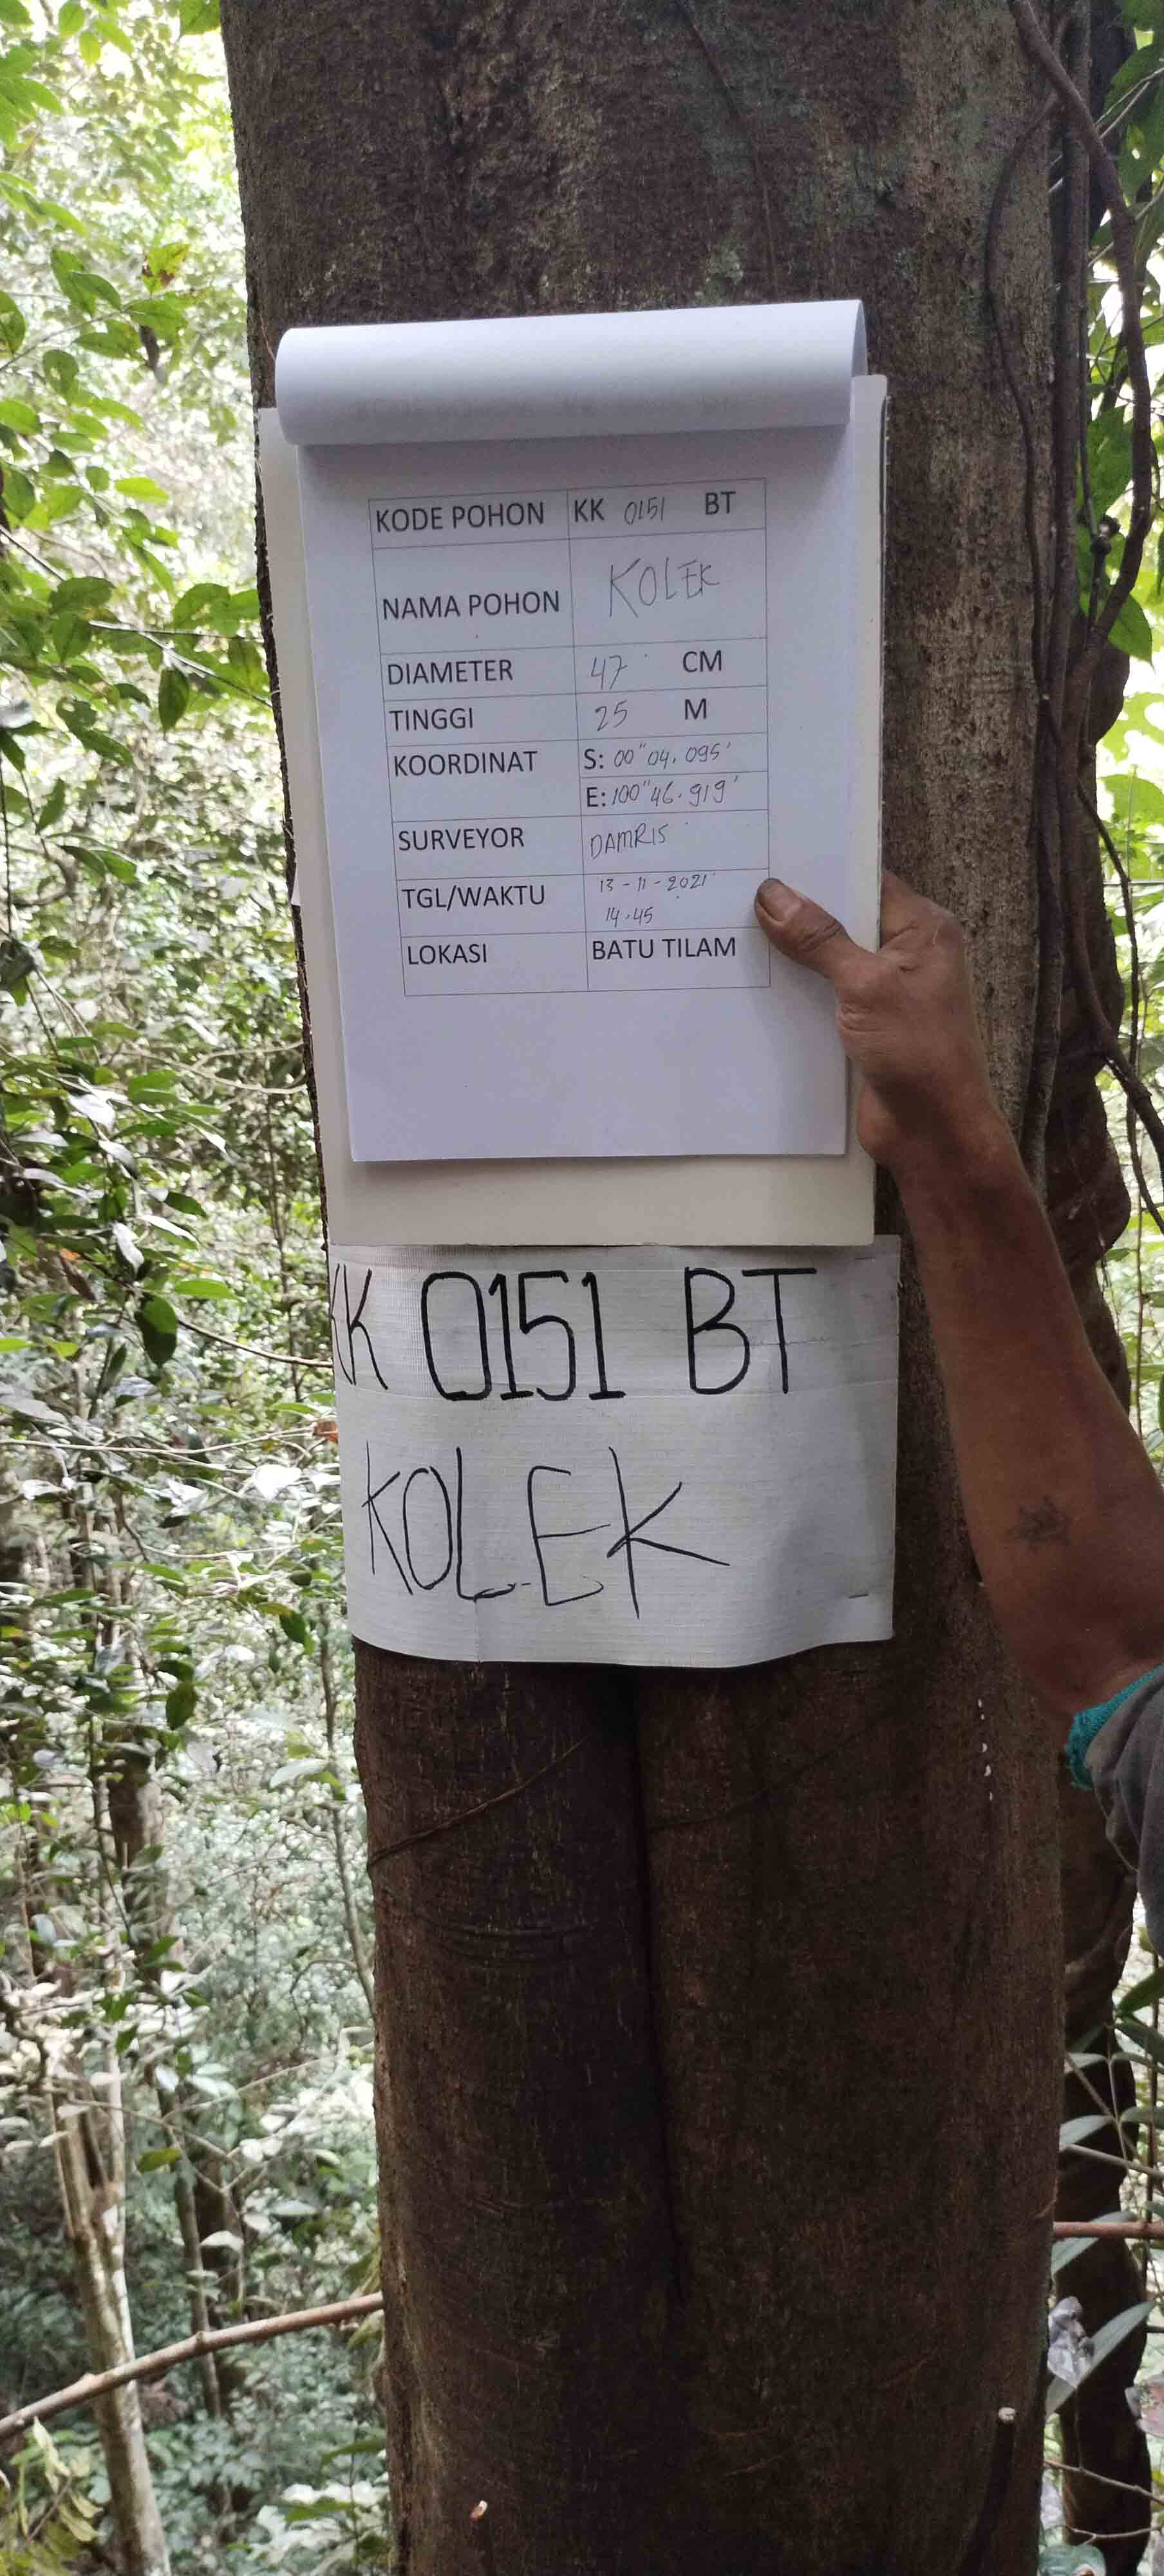 KODE POHON KK 0151 BT
NAMA POHON KOLEK
DIAMETER 47 CM
TINGGI 25 M
KOORDINAT S: 00" 04. 095'
E: 100" 46. 919'
SURVEYOR DAMRIS
TGL/WAKTU 13-11-2021
14.45
LOKASI BATU TILAM
KK 0151 BT
KOLEK